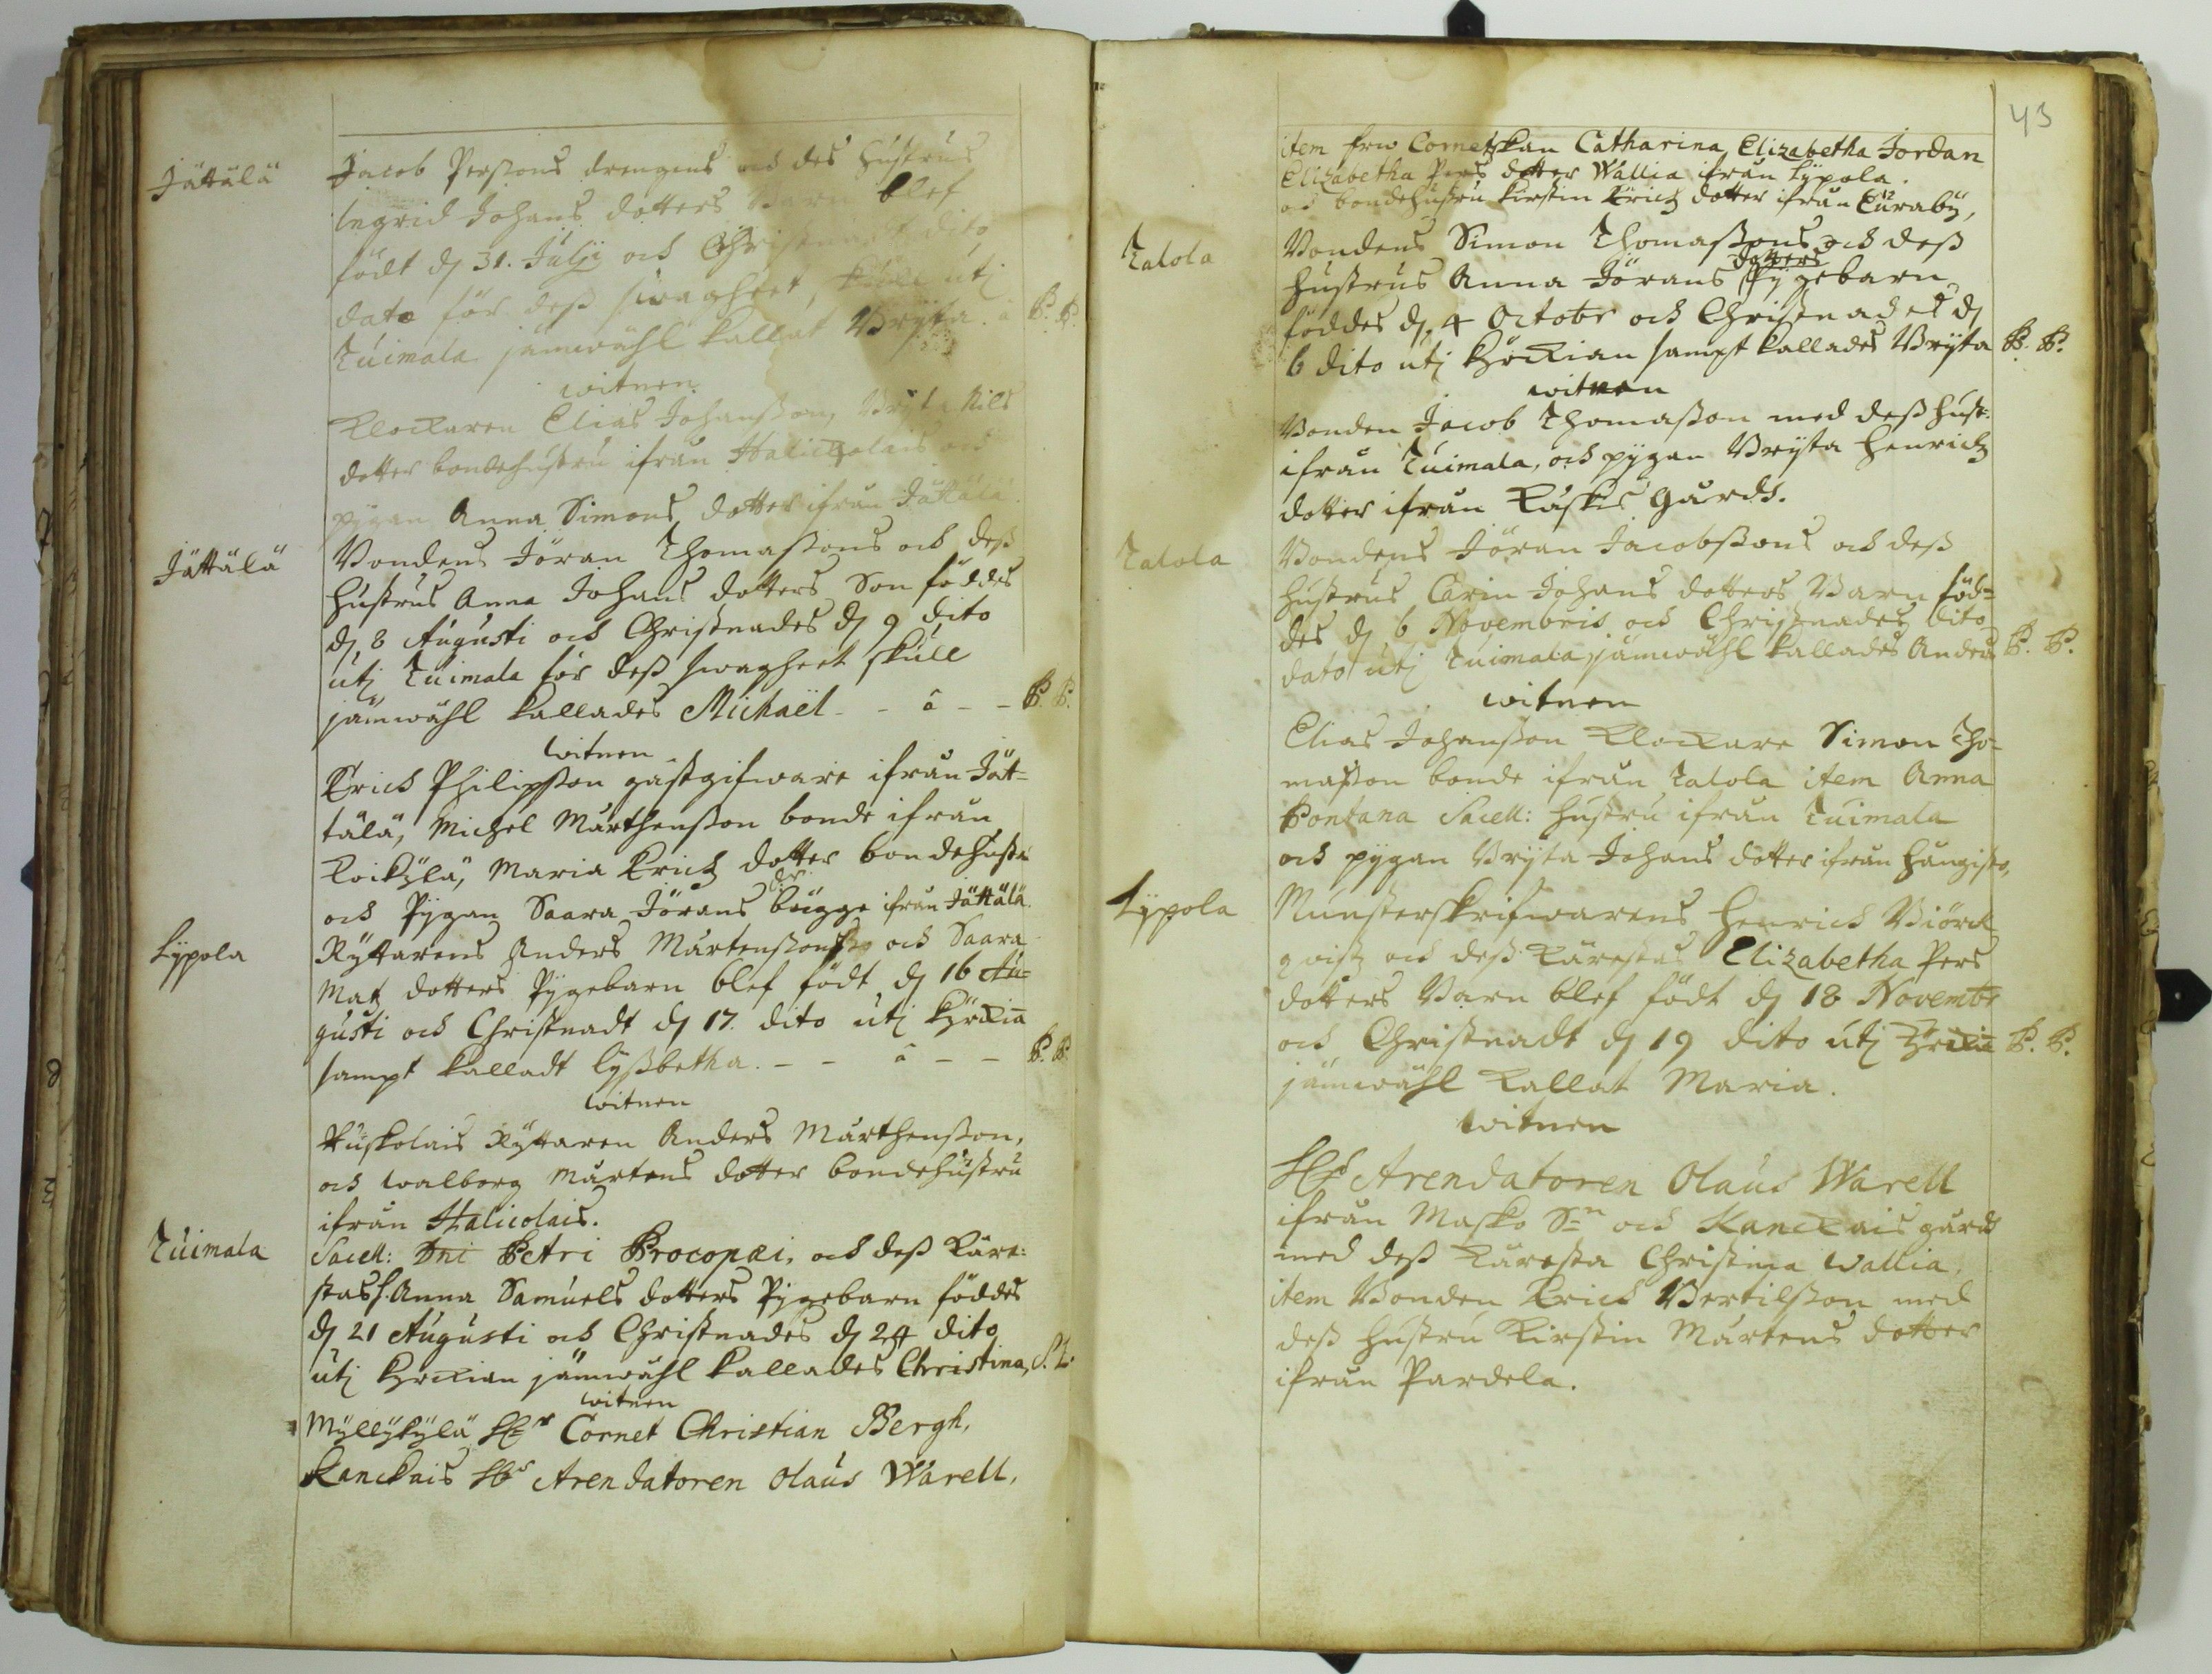 Jättälä
Jacob Perssons drengens och des Hustrus
Ingrid Johans dotters Barn blef
födt d. 31. Julij och Christnadt dito
dato för dess swagheet, skull utj
Tuimala jämwähl kallat Bryta. â P. P.
witnen
Klockaren Elias Johansson, Bryta Nils
dotter bondehustru ifrån Halickolais och
pygan Anna Simons dotter ifrån Jättälä.
Jättälä
Bondens Jöran Thomassons och dess
hustrus Anna Johans dotters Son föddes
d. 8 Augusti och Christnades d. 9 dito
utj Tuimala för dess swagheet skull
jämwähl kallades Michaël - - â - - P. P.
witnen
Erich Philipsson gästgifware ifrån Jät=
tälä, Michel Mårthensson bonde ifrån
Koikylä, Maria Erichz dotter bondehustru
och Pygan Saara Jörans dr bägge ifrån Jättälä.
Lypola
Ryttarens Anders Mårtenssons och Saara
Matz dotters Pygebarn blef födt d. 16 Au=
gusti och Christnadt d. 17. dito utj Kyrkia
sampt kalladt Lyssbetha. - - â - - P. P.
witnen
Puskolais Ryttaren Anders Mårthensson,
och Walborg Mårtens dotter bondehustru
ifrån Halicolais.
Tuimala
Sacell: Dni Petri Procopæi, och dess Käre:
stas H. Anna Samuels dotters Pygebarn föddes
d. 21 Augusti och Christnades d. 24 dito
utj Kyrkian jämwähl kallades Christina, S. L.
witnen
Myllykylä Hr Cornet Christian Bergh,
Kanckais Hr Arendatoren Olaus Warell,
43
item frw Cornetzkan Catharina Elizabetha Jordan
Elizabetha Pers dotter Wallia ifrån Lypola.
och bondehustru Kirstin Erichz dotter ifrån Euraby,
Talola
Bondens Simon Thomassons och dess
dotters
hustrus Anna Jörans Pygebarn
föddes d. 4 Octobr och Christnadet d.
6 dito utj Kyrckian sampt kallades Bryta P. P.
witnen
Bonden Jacob Thomasson med dess hust:
ifrån Tuimala, och pygan Bryta Henrichz
dotter ifrån Kaskis Gårdt.
Talola
Bondens Jöran Jacobssons och dess
hustrus Carin Johans dotters Barn föd=
des d. 6 Novembris och Christnades dito
dato utj Tuimala, jämwähl kallades Anders P. P.
witnen
Elias Johansson Klockare Simon Tho=
masson bonde ifrån Talola item Anna
Pontana Sacell: hustru ifrån Tuimala
och pygan Bryta Johans dotter ifrån Hångisto,
Lypola
Munsterskrifwarens Henrich Biörck
qvistz och dess Kärestas Elizabetha Pers
dotters Barn blef födt d. 18 Novembr
och Christnadt d. 19 dito utj Kyrkia P. P.
jämwähl kallat Maria.
witnen
Hr Arendatoren Olaus Warell
ifrån Masko Sn och Kanckais gårdt
med dess Käresta Christina Wallia,
item Bonden Erich Bertilsson med
dess hustru Kirstin Mårtens dotter
ifrån Pardela.